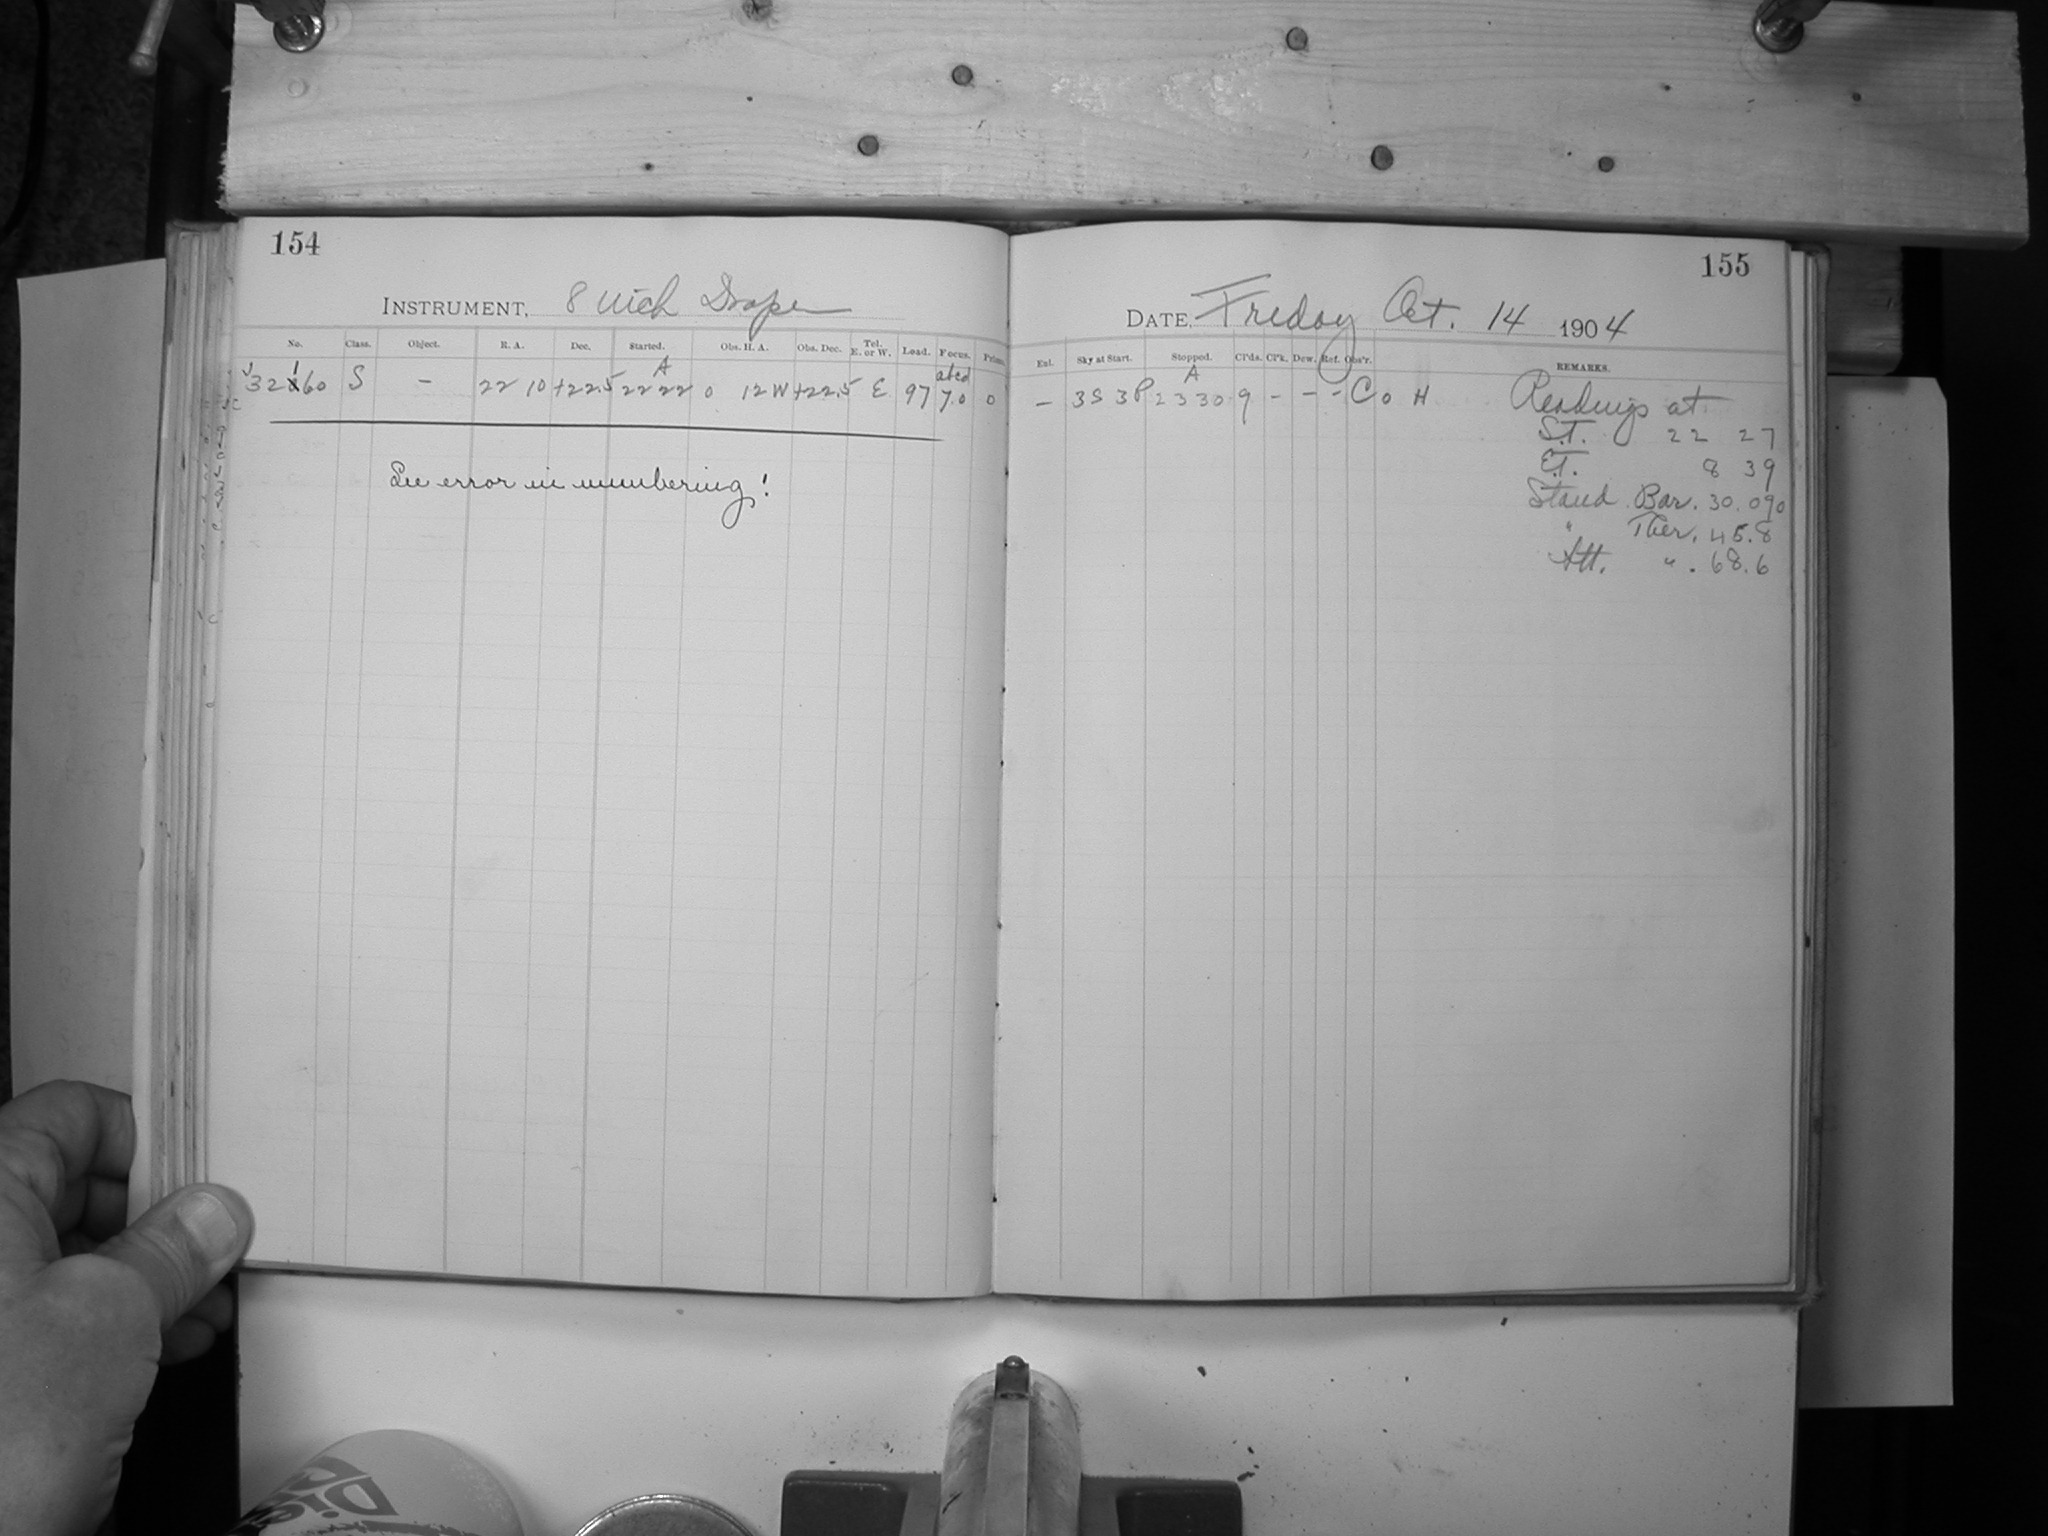 154
INSTRUMENT, 8 inch Draper
No. Class. Object. R. A. Dec. Started. Obs. H. A. Obs. Dec. Tel. E. or W. Load. Focus. Prism.
1 A abcd
32860 S - 22 10 +22.5 22 22 0 12 W +22.5 E 97 7.0 0
See error in numbering!
155
DATE, Friday Oct. 14 1904
Ent. Sky at Start. Stopped. Cl'ds. Cl'k. Dew. Ref. Obs'r. REMARKS.
A
- 3S 3P 23 30 9 - - - C o H Readings at
S.T. 22 27
E.T. 8 39
Stand. Bar. 30.090
" Ther. 45.8
Att. " . 68.6
Die